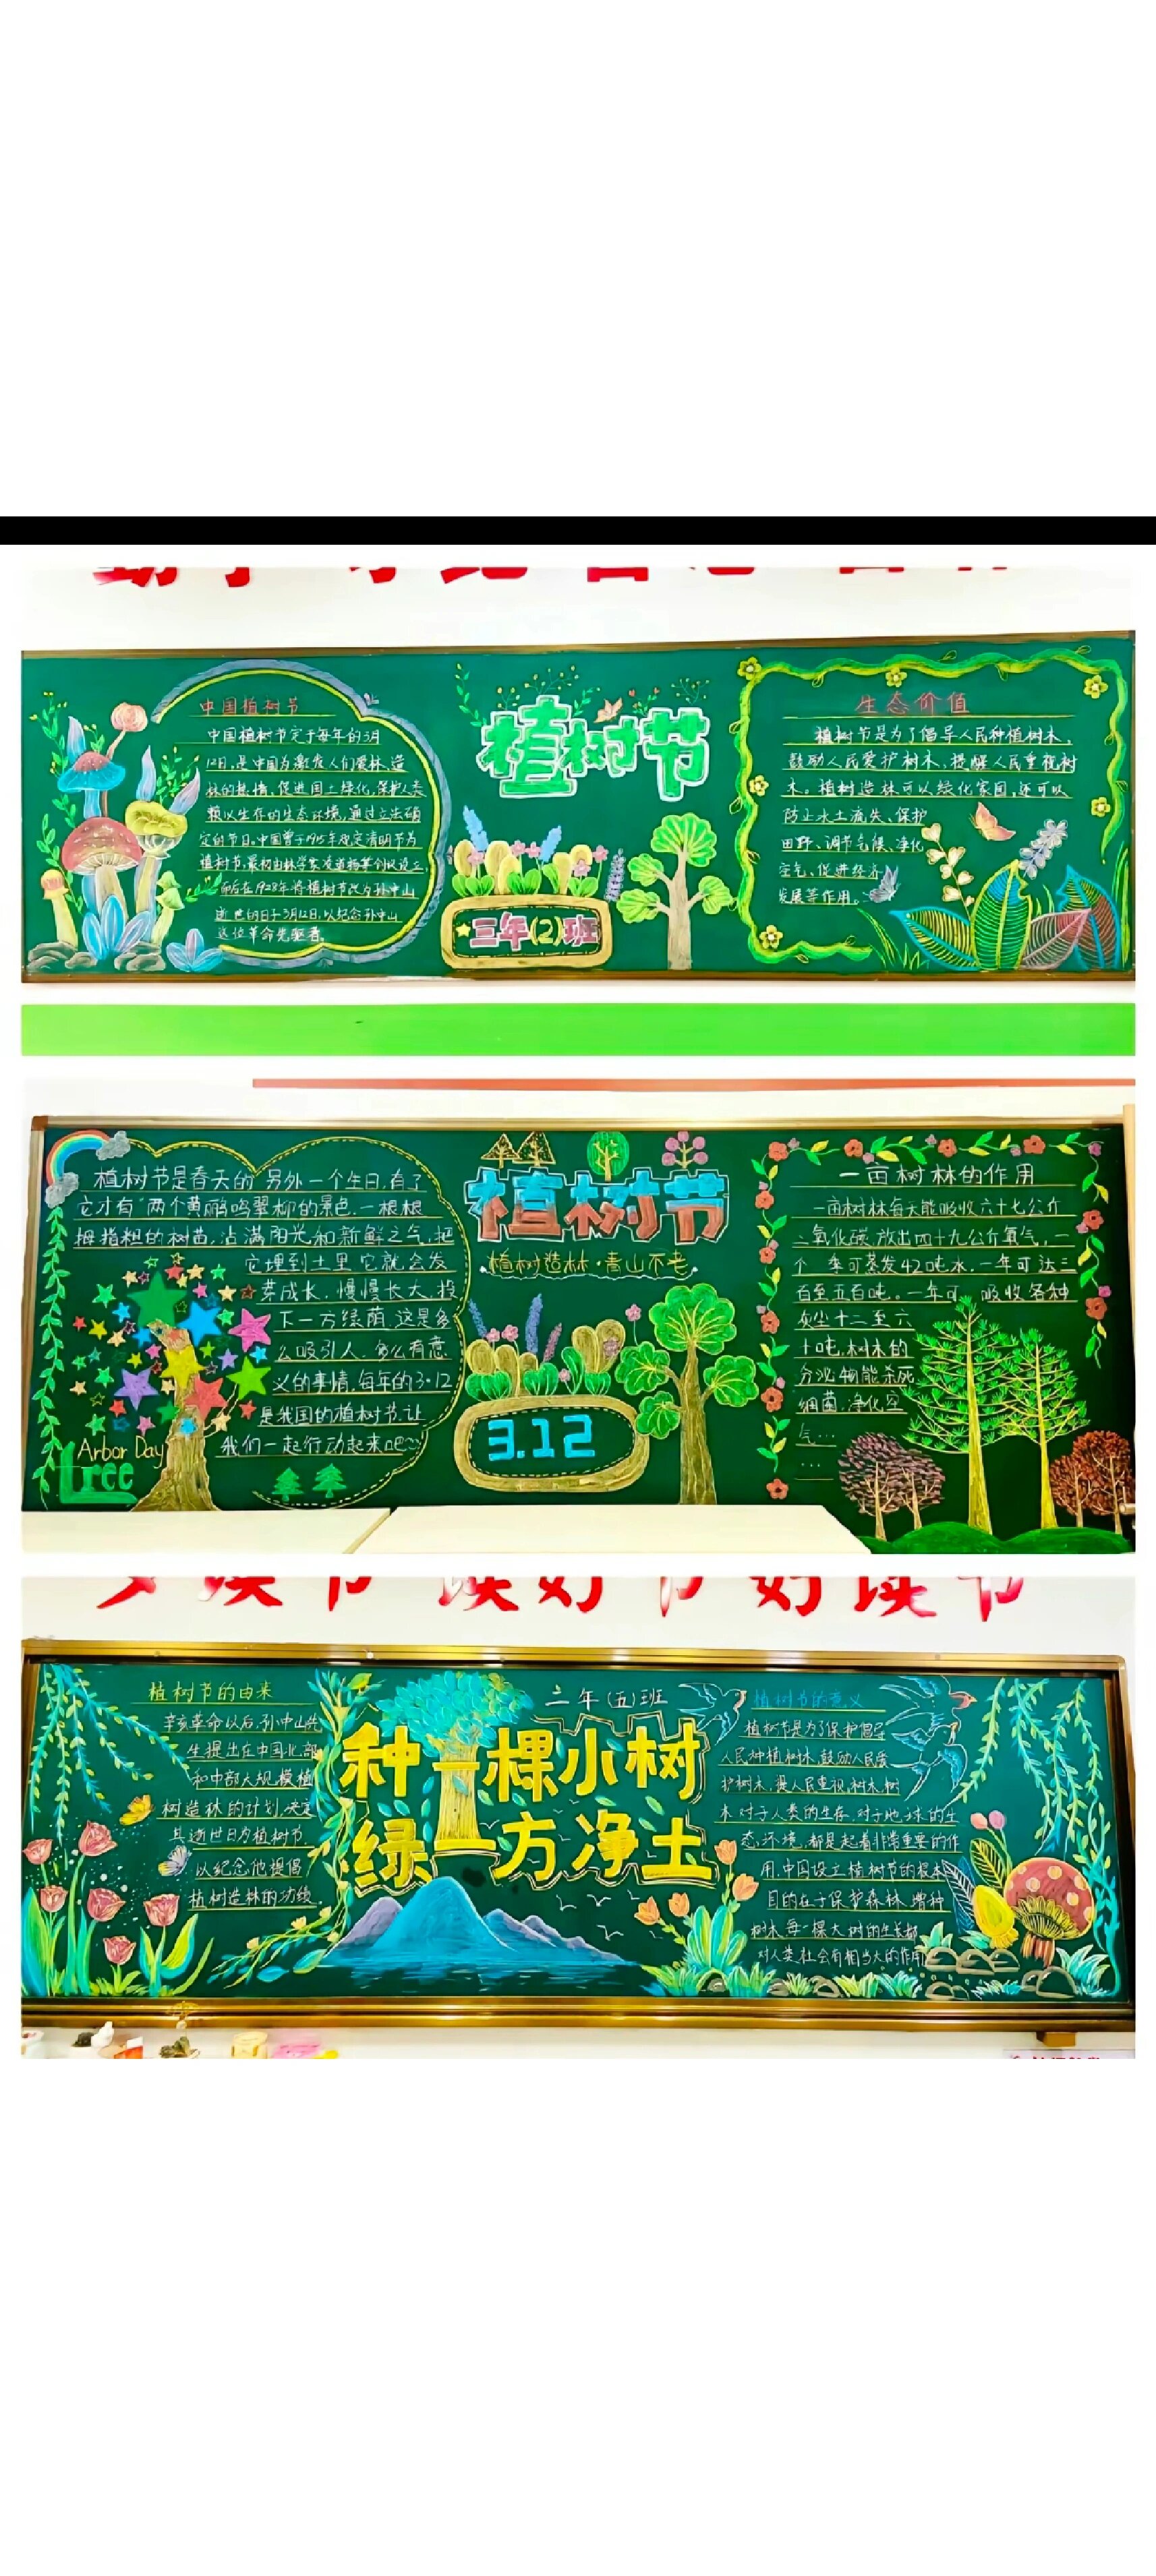 中国植树节
中国植树节定于每年的3月
12日,是中国为激发人们爱林、造
林的热情,促进国土绿化,保护人类
赖以生存的生态环境,通过立法确
定的节日。中国曾于1915年规定清明节为
植树节,最初由林学家凌道扬等倡议设立
而后在1928年将植树节改为孙中山
逝世的日子3月12日,以纪念孙中山
这位革命先驱者。
植树节
三年(2)班
生态价值
植树节是为了倡导人民种植树木、
鼓励人民爱护树木、提醒人民重视树
木。植树造林可以绿化家园,还可以
防止水土流失、保护
田野、调节气候、净化
空气、促进经济
发展等作用。
植树节是春天的 另外一个生日,有了
它才有"两个黄鹂鸣翠柳的景色.一根根
拇指粗的树苗,沾满阳光和新鲜之气,把
它埋到土里,它就会发
芽成长,慢慢长大,投
下一方绿荫.这是多
么吸引人,多么有意
义的事情.每年的3·12
是我国的植树节.让
我们一起行动起来吧
Arbor Day
Tree
植树节
植树造林·青山不老
3.12
一亩树林的作用
一亩树林每天能吸收六十七公斤
二氧化碳 放出四十九公斤氧气,一
个 季可蒸发42吨水,一年可达三
百至五百吨。一年可 吸收各种
灰尘十二至六
十吨,树木的
分泌物能杀死
细菌.净化空
气…
…
多读书 读好书 好读书
植树节的由来
辛亥革命以后,孙中山先
生提出在中国北部
和中部大规模植
树造林的计划,决定
其逝世日为植树节,
以纪念他提倡
植树造林的功绩
二年(五)班
种一棵小树
绿一方净土
植树节的意义
植树节是为了保护倡导
人民种植树木,鼓励人民爱
护树木,提人民重视树木,树
木对于人类的生存,对于地球的生
态环境,都是起着非常重要的作
用,中国设立植树节的根本
目的在于保护森林,增种
树木,每一棵大树的生长都
对人类社会有相当大的作用